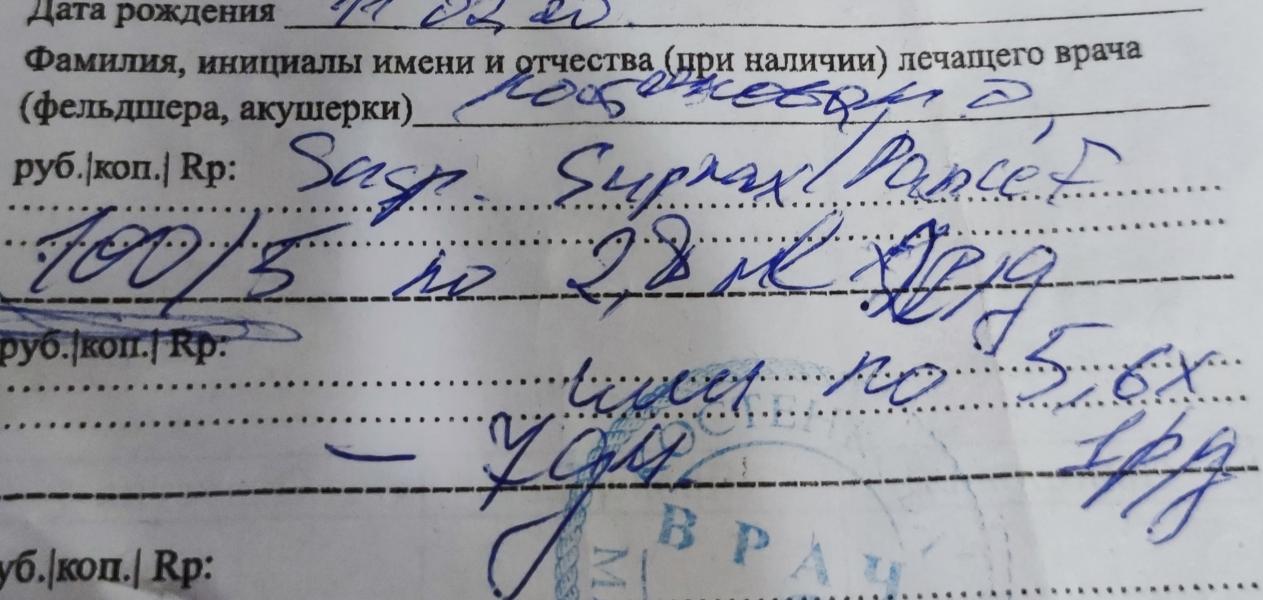 Дата рождения 11 02 20
Фамилия, инициалы имени и отчества (при наличии) лечащего врача
(фельдшера, акушерки)
руб.|коп.| Rp: Susp. Suprax/Pancef
100/5 по 2,8 мл х 2 р/д
руб.|коп.| Rp:
или по 5,6 х
1 р/д
– 7 дн.
ВРАЧ
уб.|коп.| Rp: